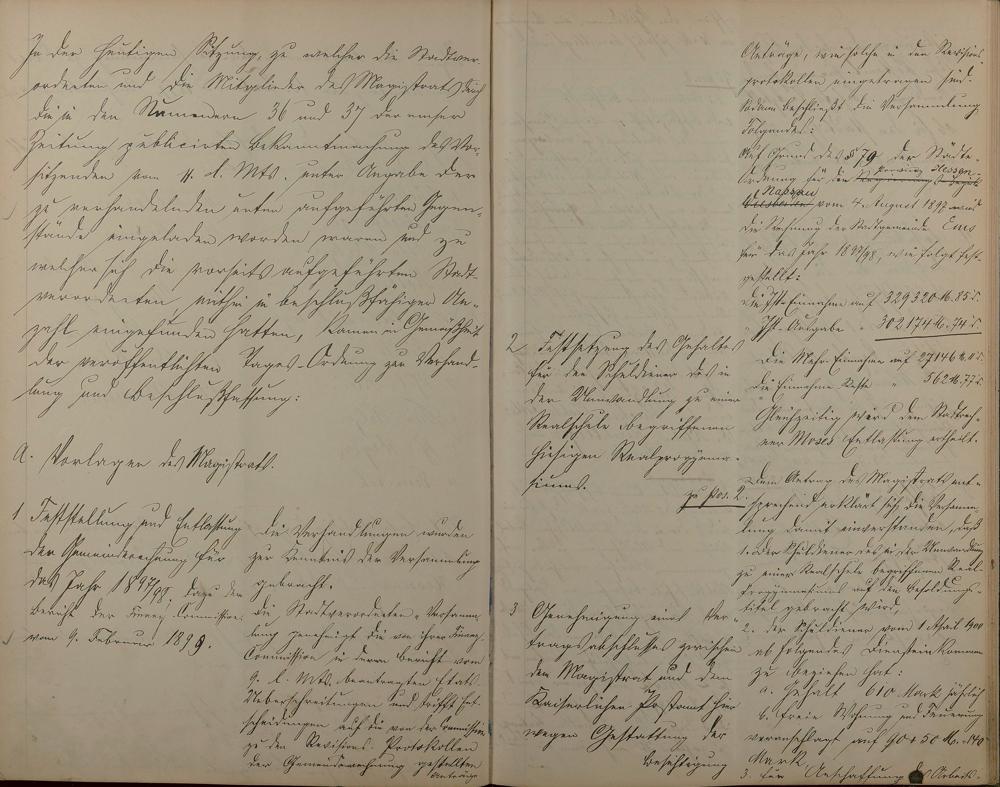 In der heutigen Sitzung, zu welcher die Stadtver-
ordneten und die Mitglieder des Magistrats durch
die in den Nummern 36 und 37 der Emser
Zeitung publicirten Bekanntmachung des Vor-
sitzenden vom 11. d. Mts. unter Angabe der
zu verhandelnden unten aufgeführten Gegen-
stände eingeladen worden waren und zu
welcher sich die vorseits aufgeführten Stadt-
verordneten mithin in beschlußfähiger An-
zahl eingefunden hatten, kamen in Gemäßheit
der veröffentlichten Tages-Ordnung zur Verhand-
lung und Beschlußfassung:
A. Vorlagen des Magistrats.
1 Feststellung und Entlastung
der Gemeinderechnung für
das Jahr 1897/98, dazu den
Bericht der Finanz-Commission
vom 9. Februar 1899.
Die Verhandlungen wurden
zur Kenntniß der Versammlung
gebracht.
Die Stadtverordneten-Versamm-
lung genehmigt die von ihrer Finanz-
Commission in deren Bericht vom
9. l. Mts. beantragten Etats-
Ueberschreitungen und trifft Ent-
scheidungen auf die von der Commission
zu den Revisions-Protokollen
der Gemeinderechnung gestellten
Anträge
2 Festsetzung des Gehaltes
für den Schuldiener des in
der Umwandlung zu einer
Realschule begriffenen
hiesigen Realprogymna-
siums.
3 Genehmigung eines Ver-
tragsabschlusses zwischen
dem Magistrat und dem
Kaiserlichen Postamt hier
wegen Gestattung der
Besichtigung
Anträge, wie solche in den Revisions-
protokollen eingetragen sind.
Sodann beschließt die Versammlung
Folgendes:
Auf Grund des § 79 der Städte-
Ordnung für die Provinz Hessen-
Nassau
vom 4. August 1897 wird
die Rechnung der Stadtgemeinde Ems
für das Jahr 1897/98, wie folgt fest-
gestellt:
Die Ist-Einnahme auf 329320 M. 85 d.
" Ist-Ausgabe " 302174 M. 74 d.
Die Mehr-Einnahme auf 27146 M. 11 d.
Die Einnahme Reste " 562 M. 77 d.
Gleichzeitig wird dem Stadtrech-
ner Moses Entlastung ertheilt.
zu pos. 2.
Dem Antrag des Magistrats ent-
sprechend erklärt sich die Versamm-
lung damit einverstanden, daß
1. der Schuldiener des in der Umwandlung
zu einer Realschule begriffenen Real-
Progymnasiums auf den Besoldungs-
titel gebracht wird,
2. der Schuldiener vom 1 April 1900
ab folgendes Diensteinkommen
zu beziehen hat:
a. Gehalt 610 Mark jährlich
b. freie Wohnung und Feuerung
veranschlagt auf 90 + 50 M. = 140
Mark
3. für Anschaffung des Arbeits-